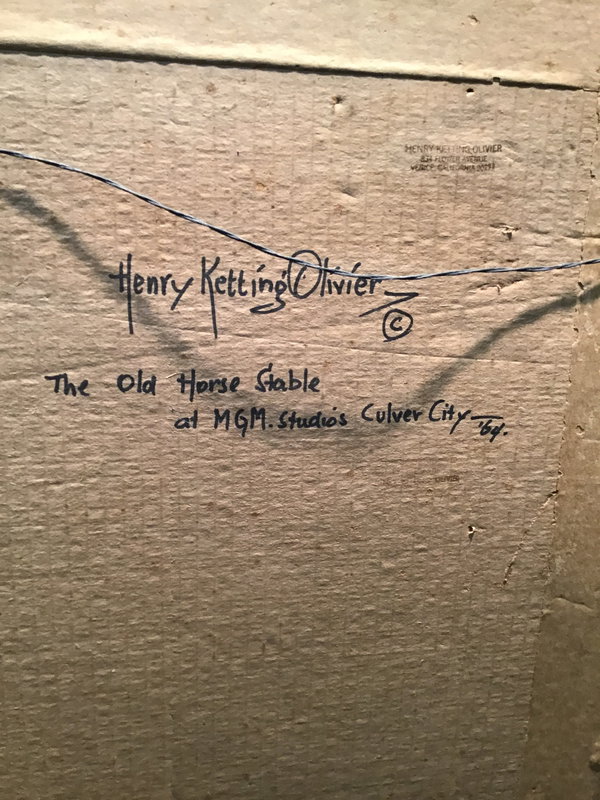 HENRY KETTING OLIVIER
VENICE, CALIFORNIA 90291
Henry Ketting Olivier
©
The Old Horse Stable
at MGM. Studio's Culver City '64.